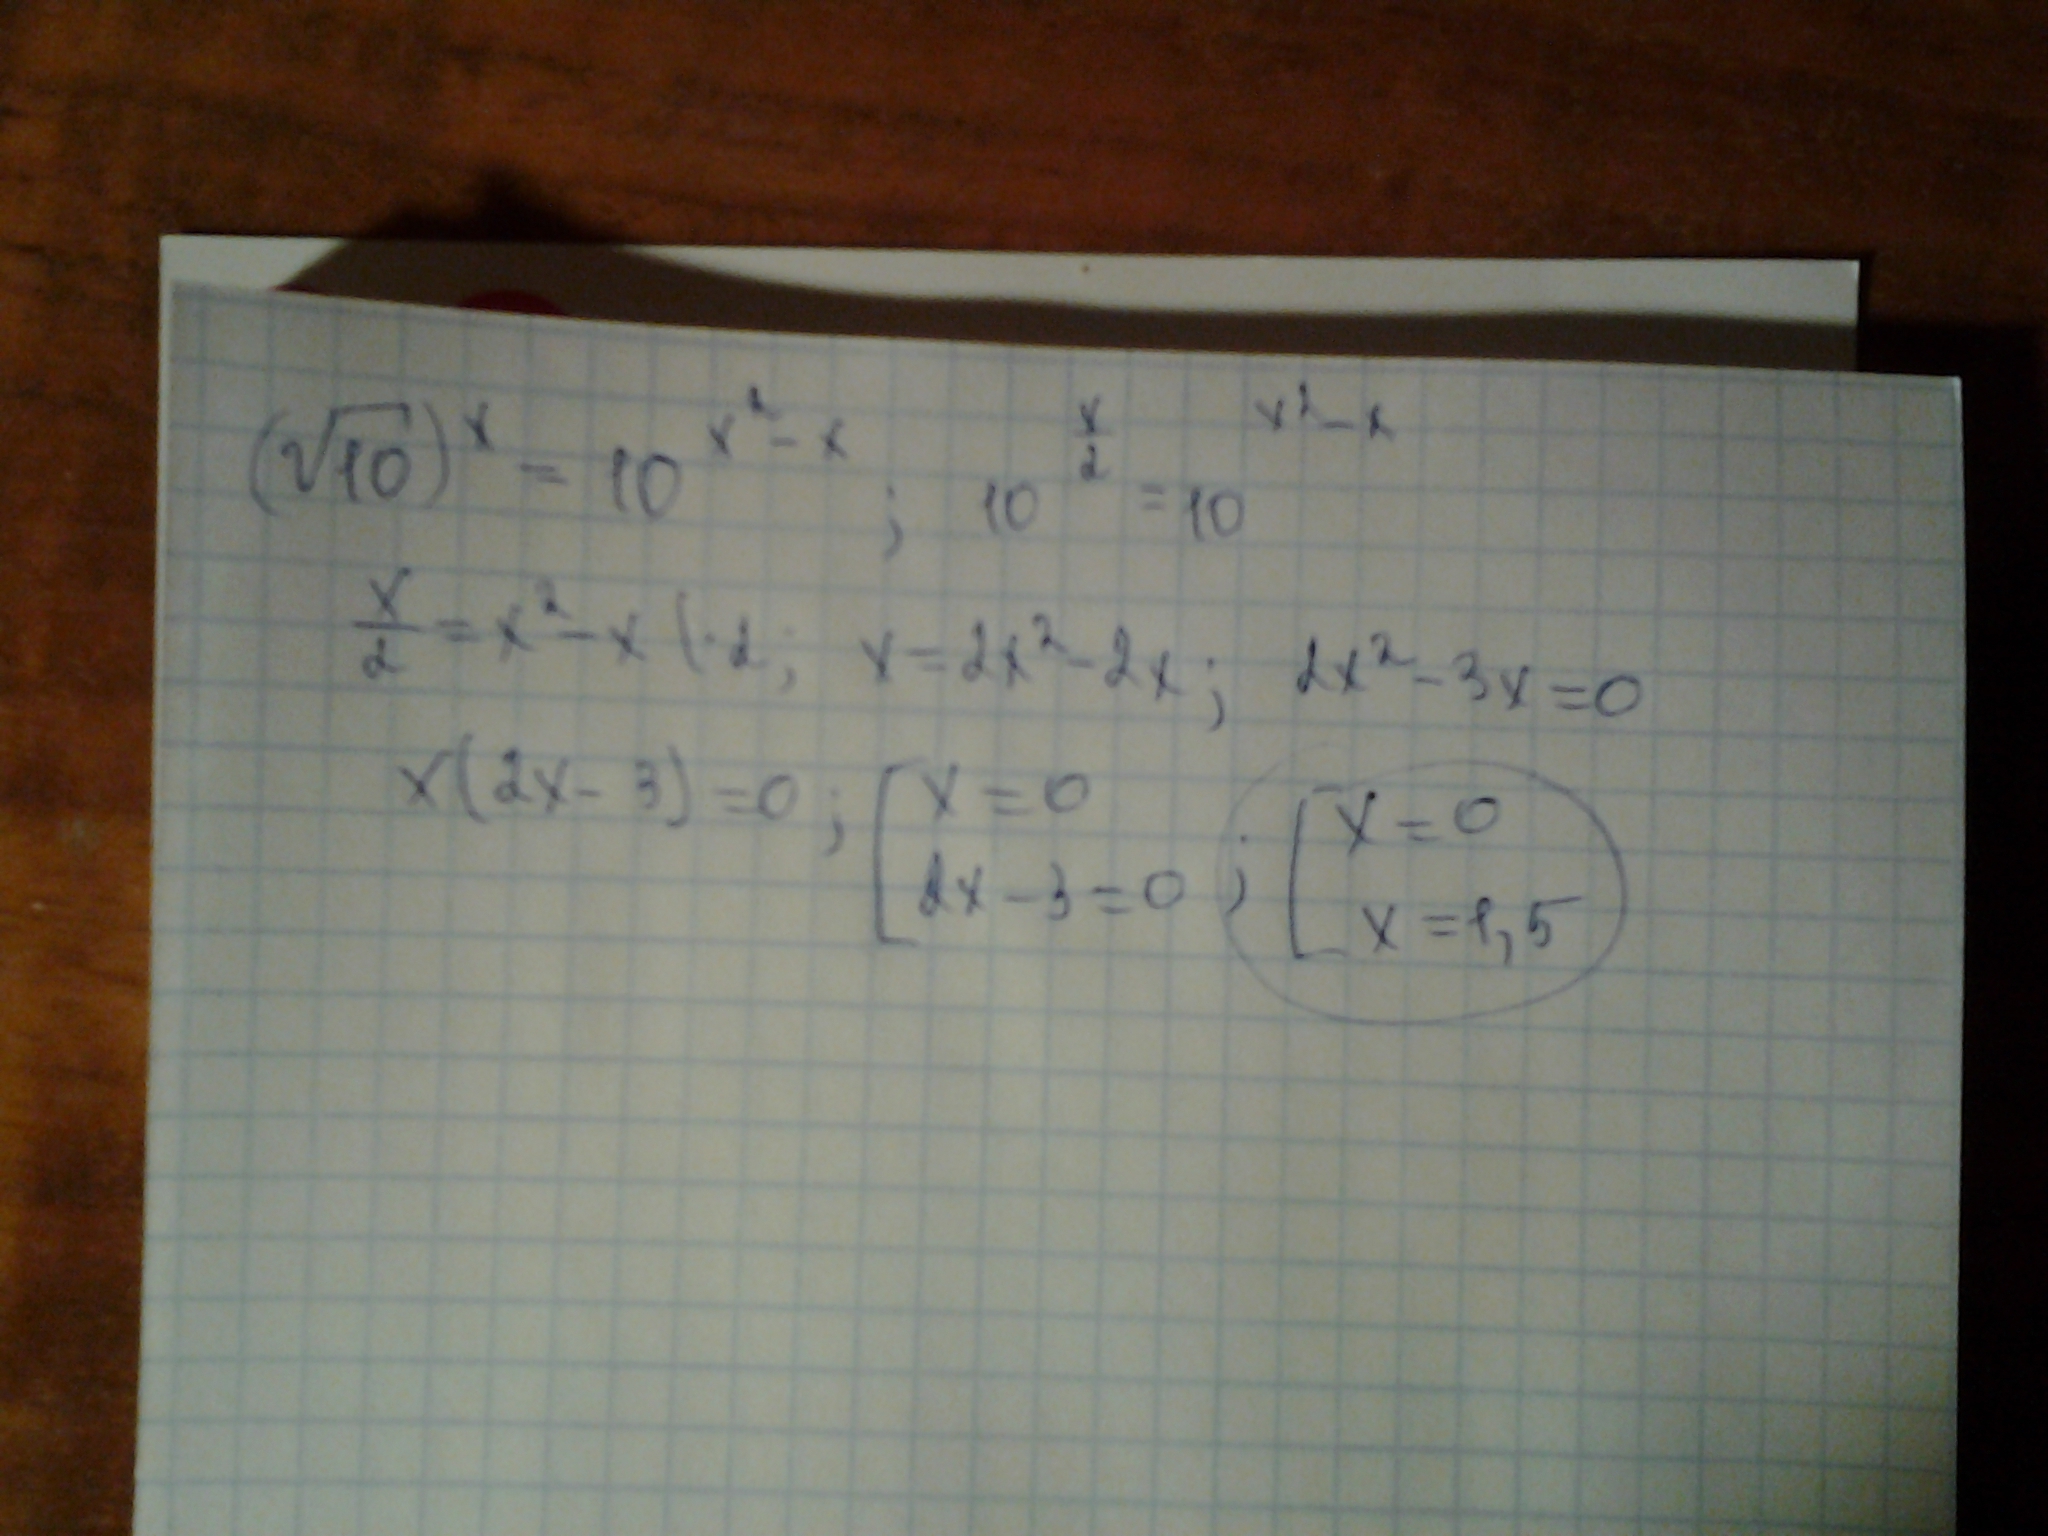 (√10)^x = 10^(x²-x) ; 10^(x/2) = 10^(x²-x)
x/2 = x²-x |·2 ; x = 2x²-2x ; 2x²-3x=0
x(2x-3)=0 ; [ x=0 2x-3=0 ; [ x=0 x=1,5